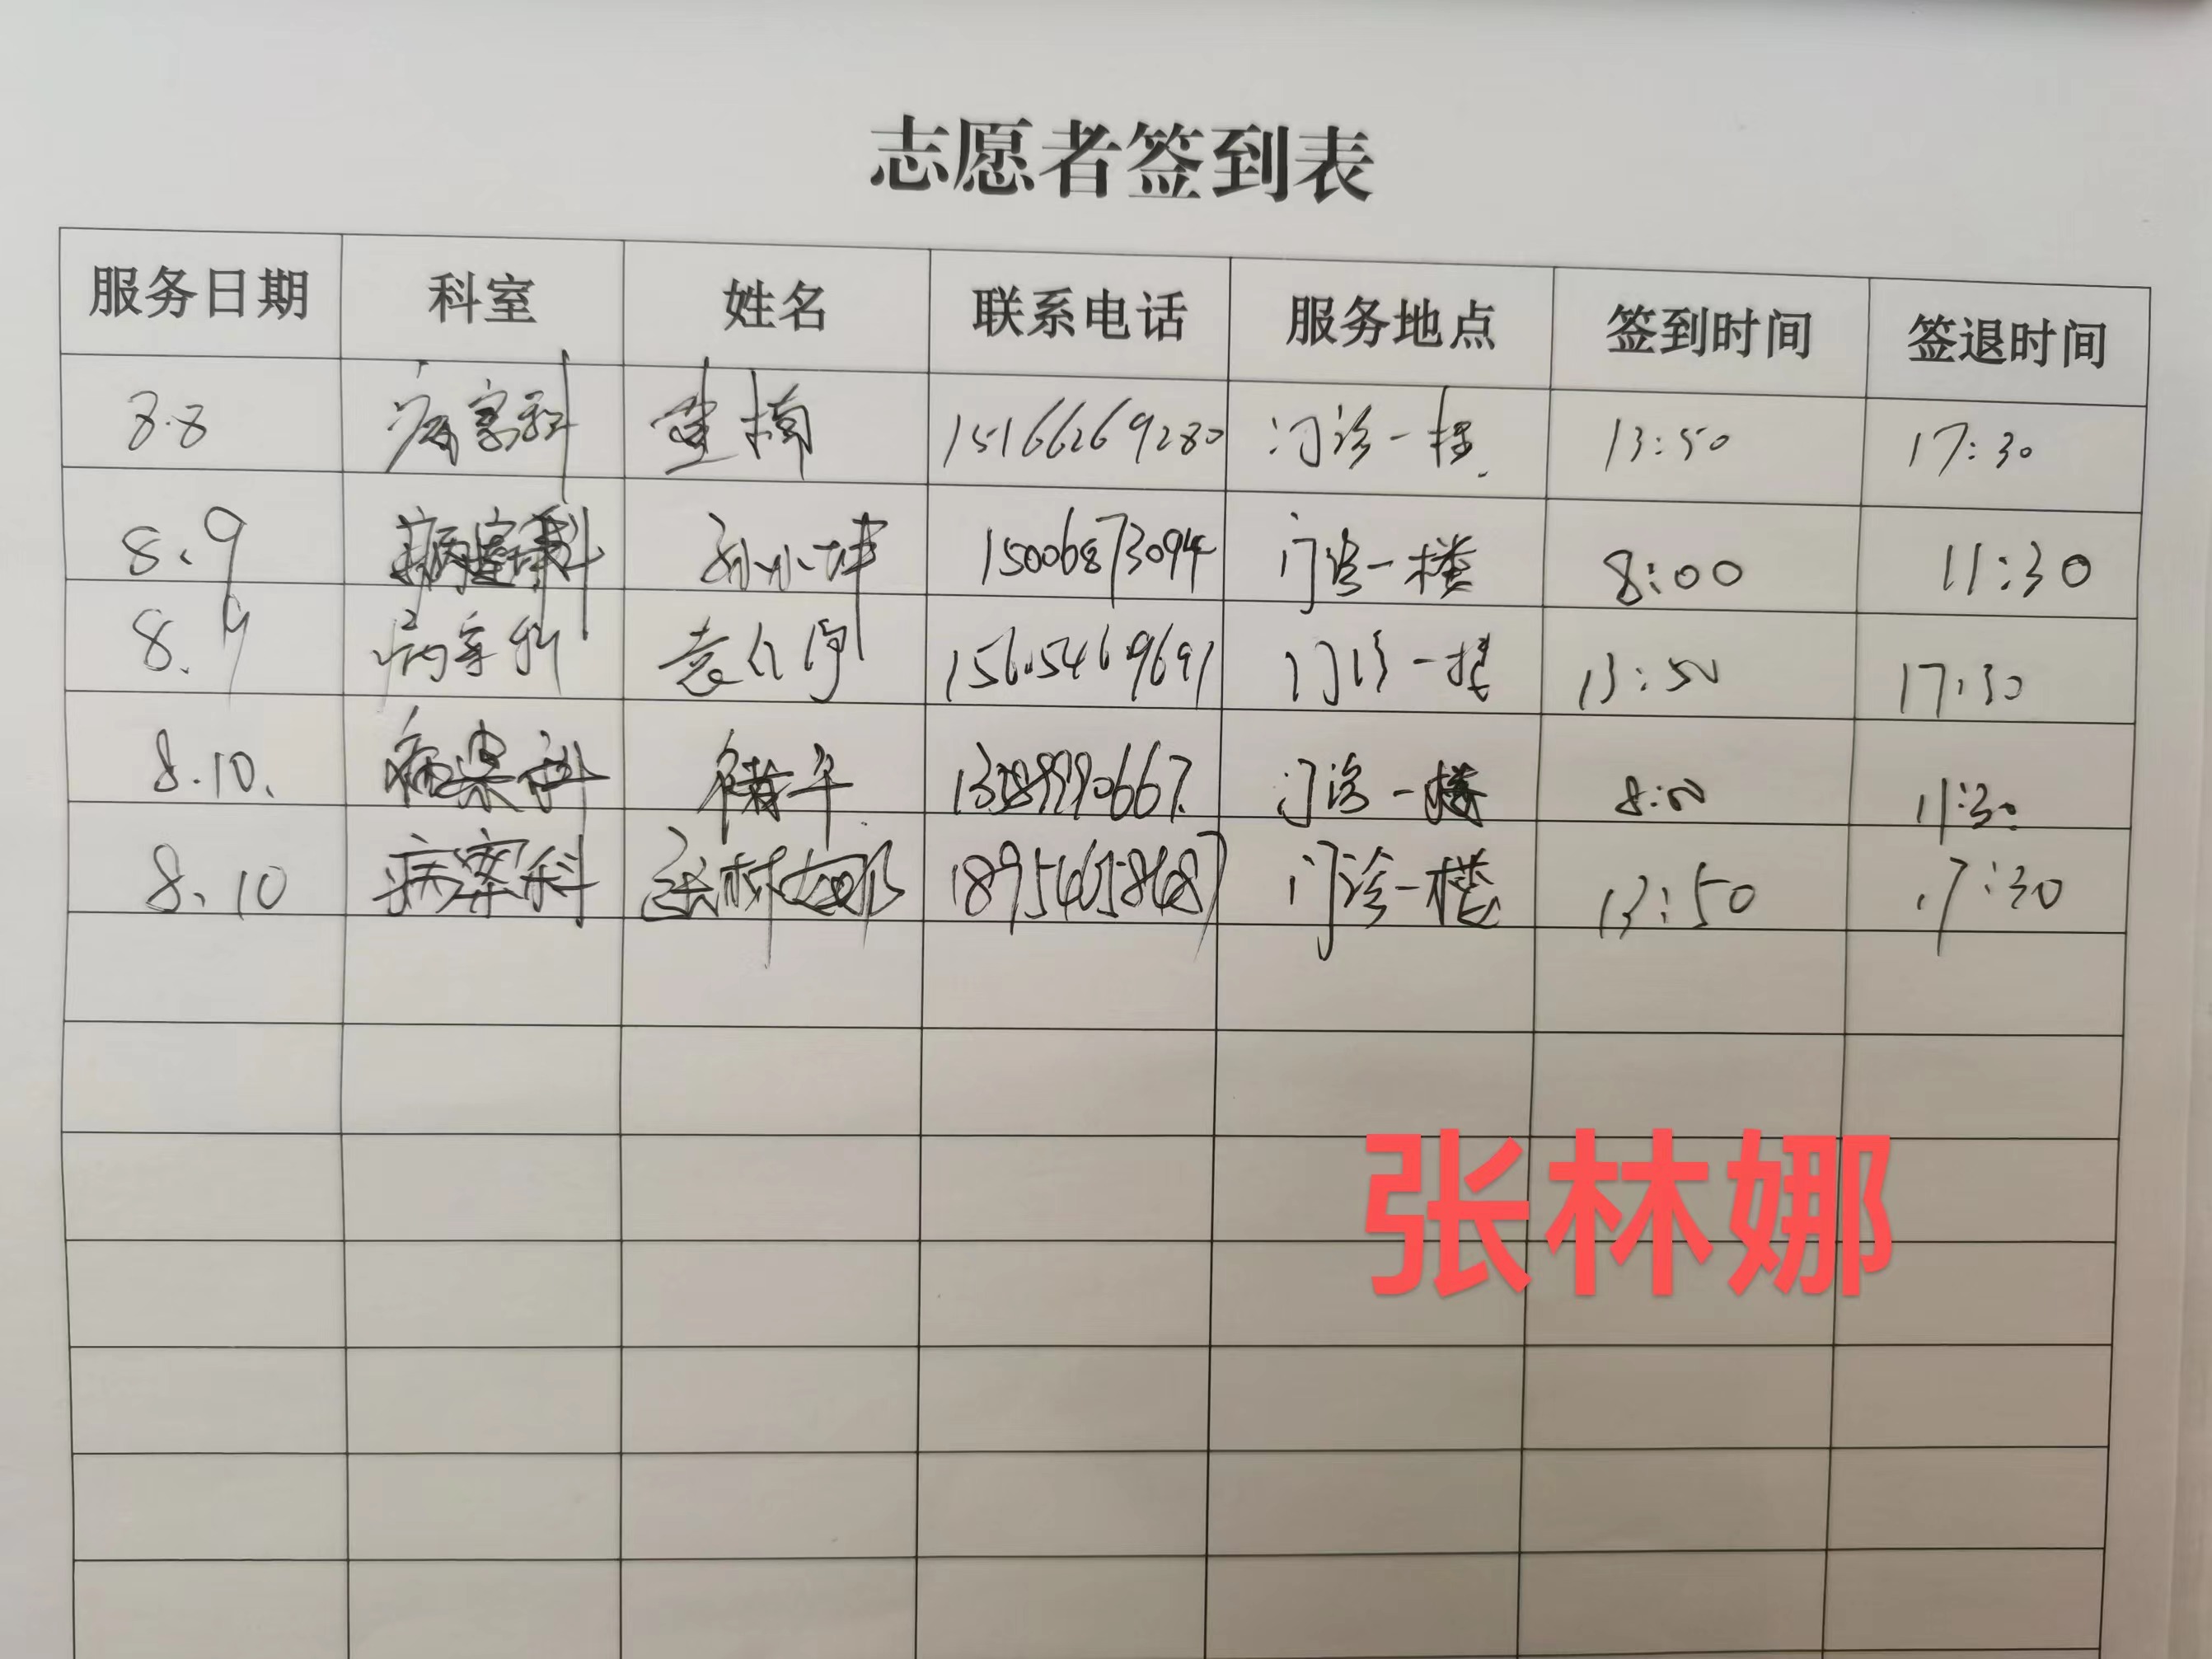 志愿者签到表
服务日期 科室 姓名 联系电话 服务地点 签到时间 签退时间
8.8 病案科 楠 15166269280 门诊一楼 13:50 17:30
8.9 病案科 孙小坤 15006873094 门诊一楼 8:00 11:30
8.9 病案科 袁 15605469691 门诊一楼 13:50 17:30
8.10. 病案科 门诊一楼 8:00 11:30
8.10 病案科 张林娜 18954658687 门诊一楼 13:50 17:30
张林娜